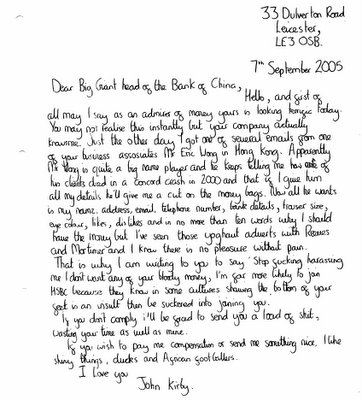 33 Dulverton Road
Leicester,
LE3 0SB.
7th September 2005
Dear Big Grant head of the Bank of China,
Hello, and first of
all may I say as an admirer of money yours is looking terrific today.
You may not realise this instantly but your company actually
knowme. Just the other day I got one of several emails from one
of your business assosiates Mr Eric Wong in Hong Kong. Apparently
Mr Wong is quite a big name player and he keeps telling me how one of
his clients died in a concord crash in 2000 and that if I give him
all my details he'll give me a cut on the money bags. Now all he wants
is my name, address, email, telephone number, bank details, trouser size,
eye colour, likes, dislikes and in no more than ten words why I should
have the money but I've seen those upghant adverts with Reeves
and Mortimer and I know there is no pleasure without pain.
That is why I am writing to you to say 'Stop sucking harassing
me I don't want any of your bloody money, I'm far more likely to join
HSBC because they know in some cultures showing the bottom of your
feet is an insult than be suckered into joining you.
If you don't comply i'll be forced to send you a load of shit,
wasting your time as well as mine.
If you wish to pay me compensation or send me something nice, I like
shiny things, ducks and African footballers.
I Love you
John Kirby.